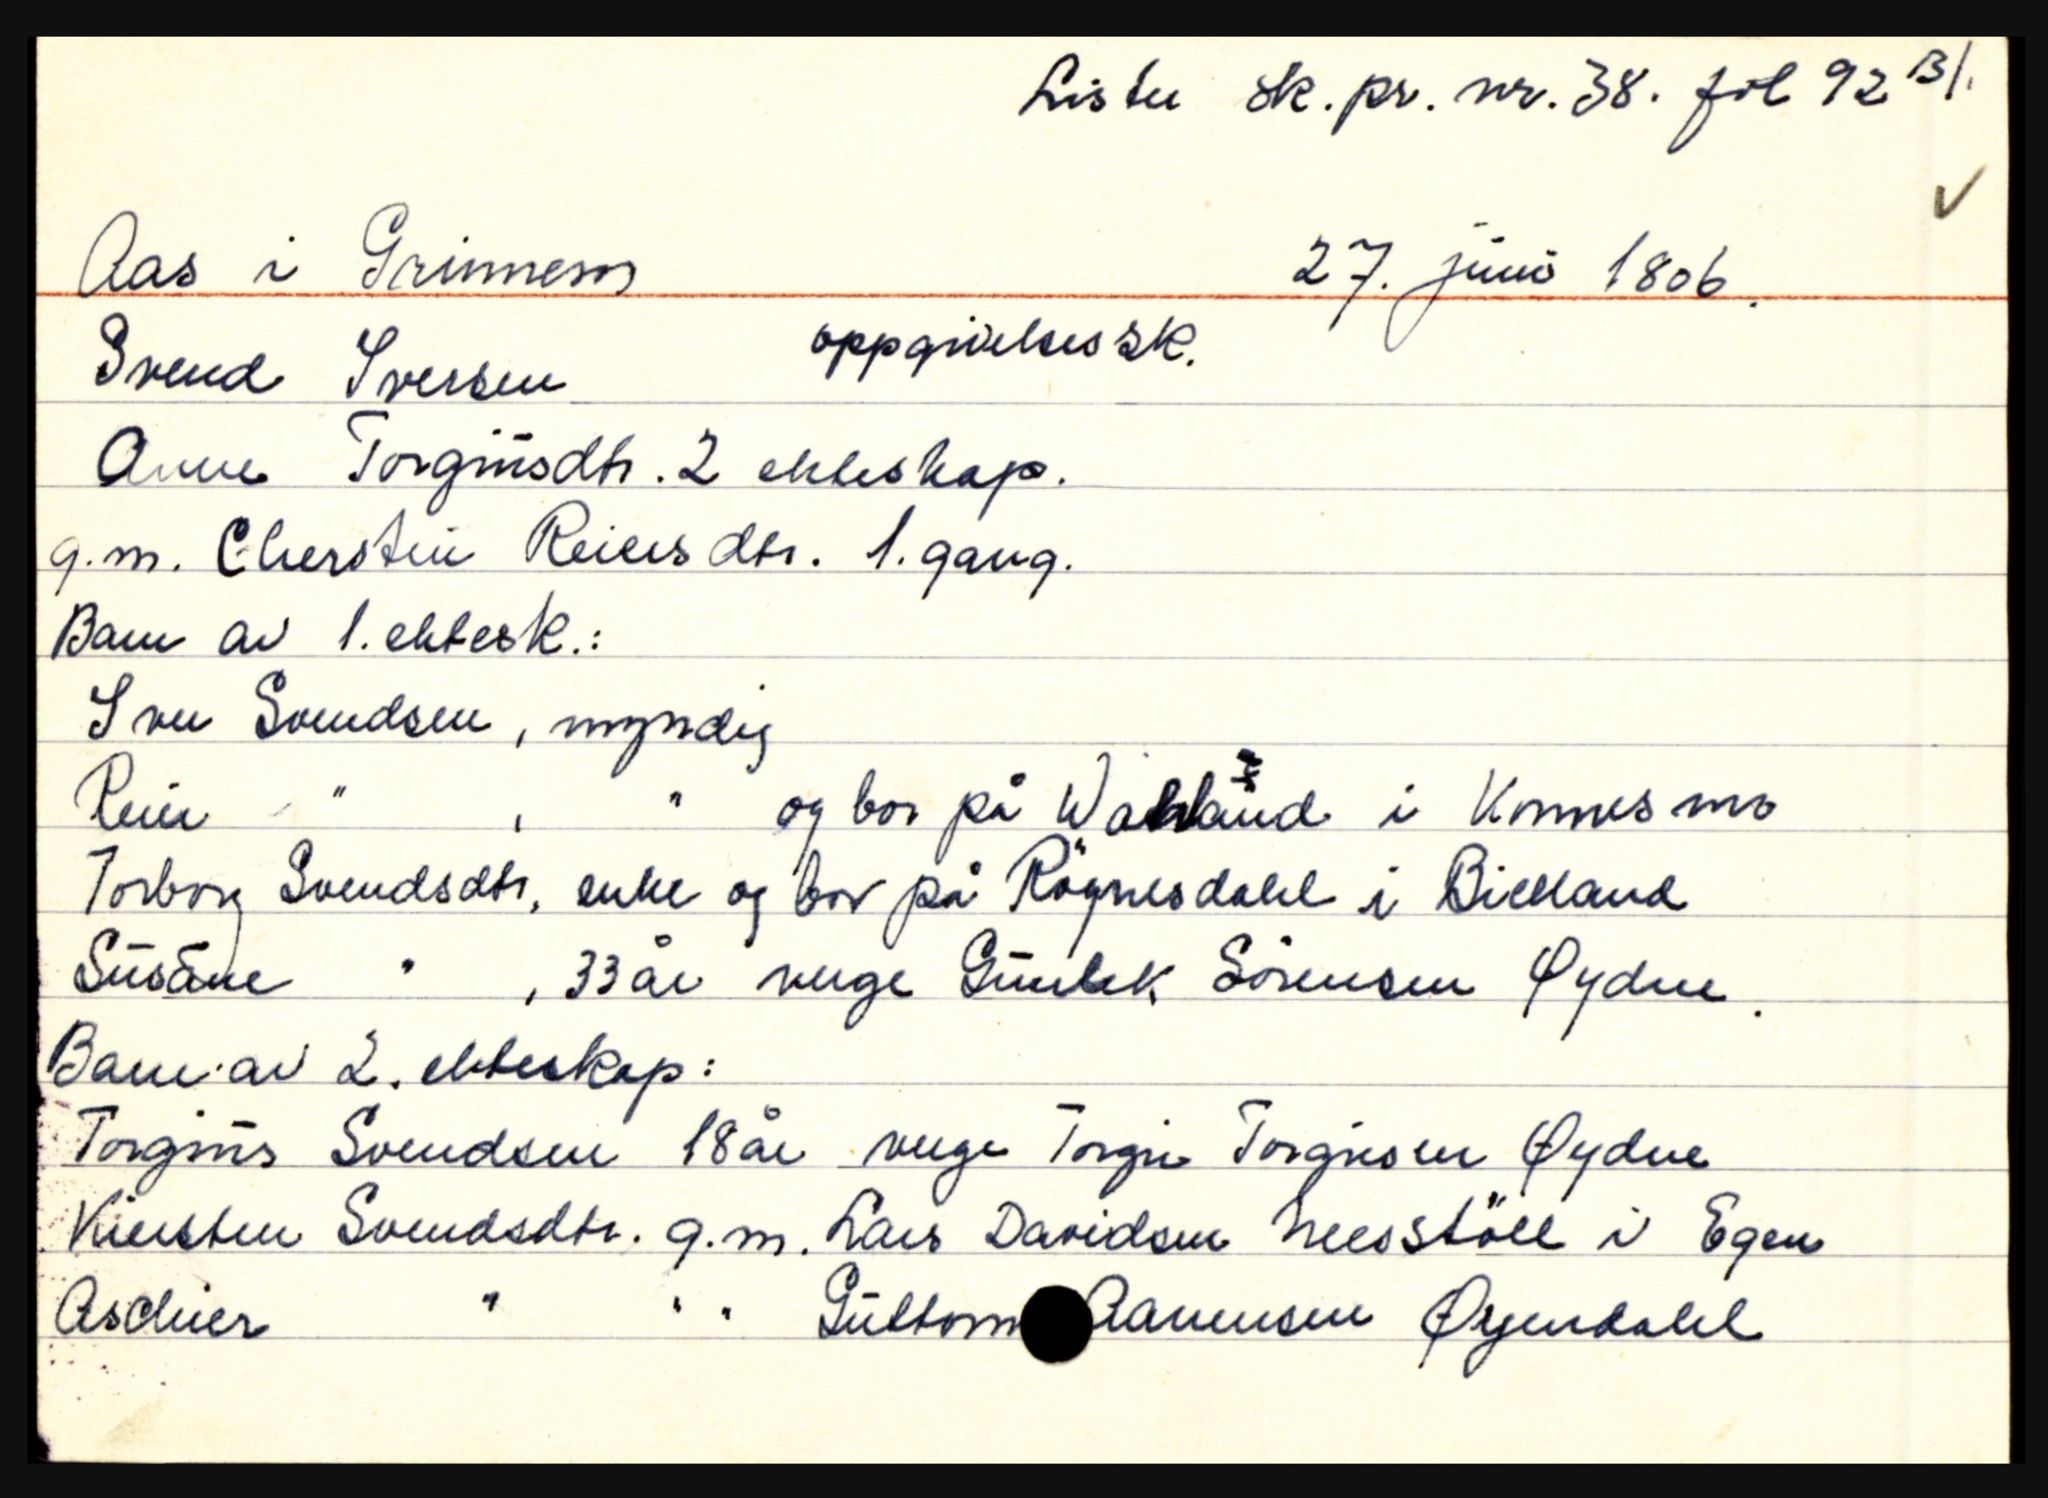 Lister sk. pr. nr. 38. fol 92 B/.
Aas i Grinnesm 27. juni 1806.
Svend Iversen oppgivelses sk.
Anne Torgiusdtr. 2 ekteskap.
g.m. Cherstin Reiersdtr. 1. gang.
Barn av 1. ektesk.:
Iver Svendsen, myndig
Reier " , " og bor på Wahland i Konnesmo
Torborg Svendsdtr, enke og bor på Røgnesdahl i Bielland
Susane " , 33 år verge Gunlek Sörensen Øydne.
Barn av 2. ekteskap:
Torgius Svendsen 18 år verge Torgie Torgiesen Øydne
Kiersten Svendsdtr. g.m. Lars Davidsen Neesstöll i Egen
Aschier " " " Guttorm Aanensen Øyendahl